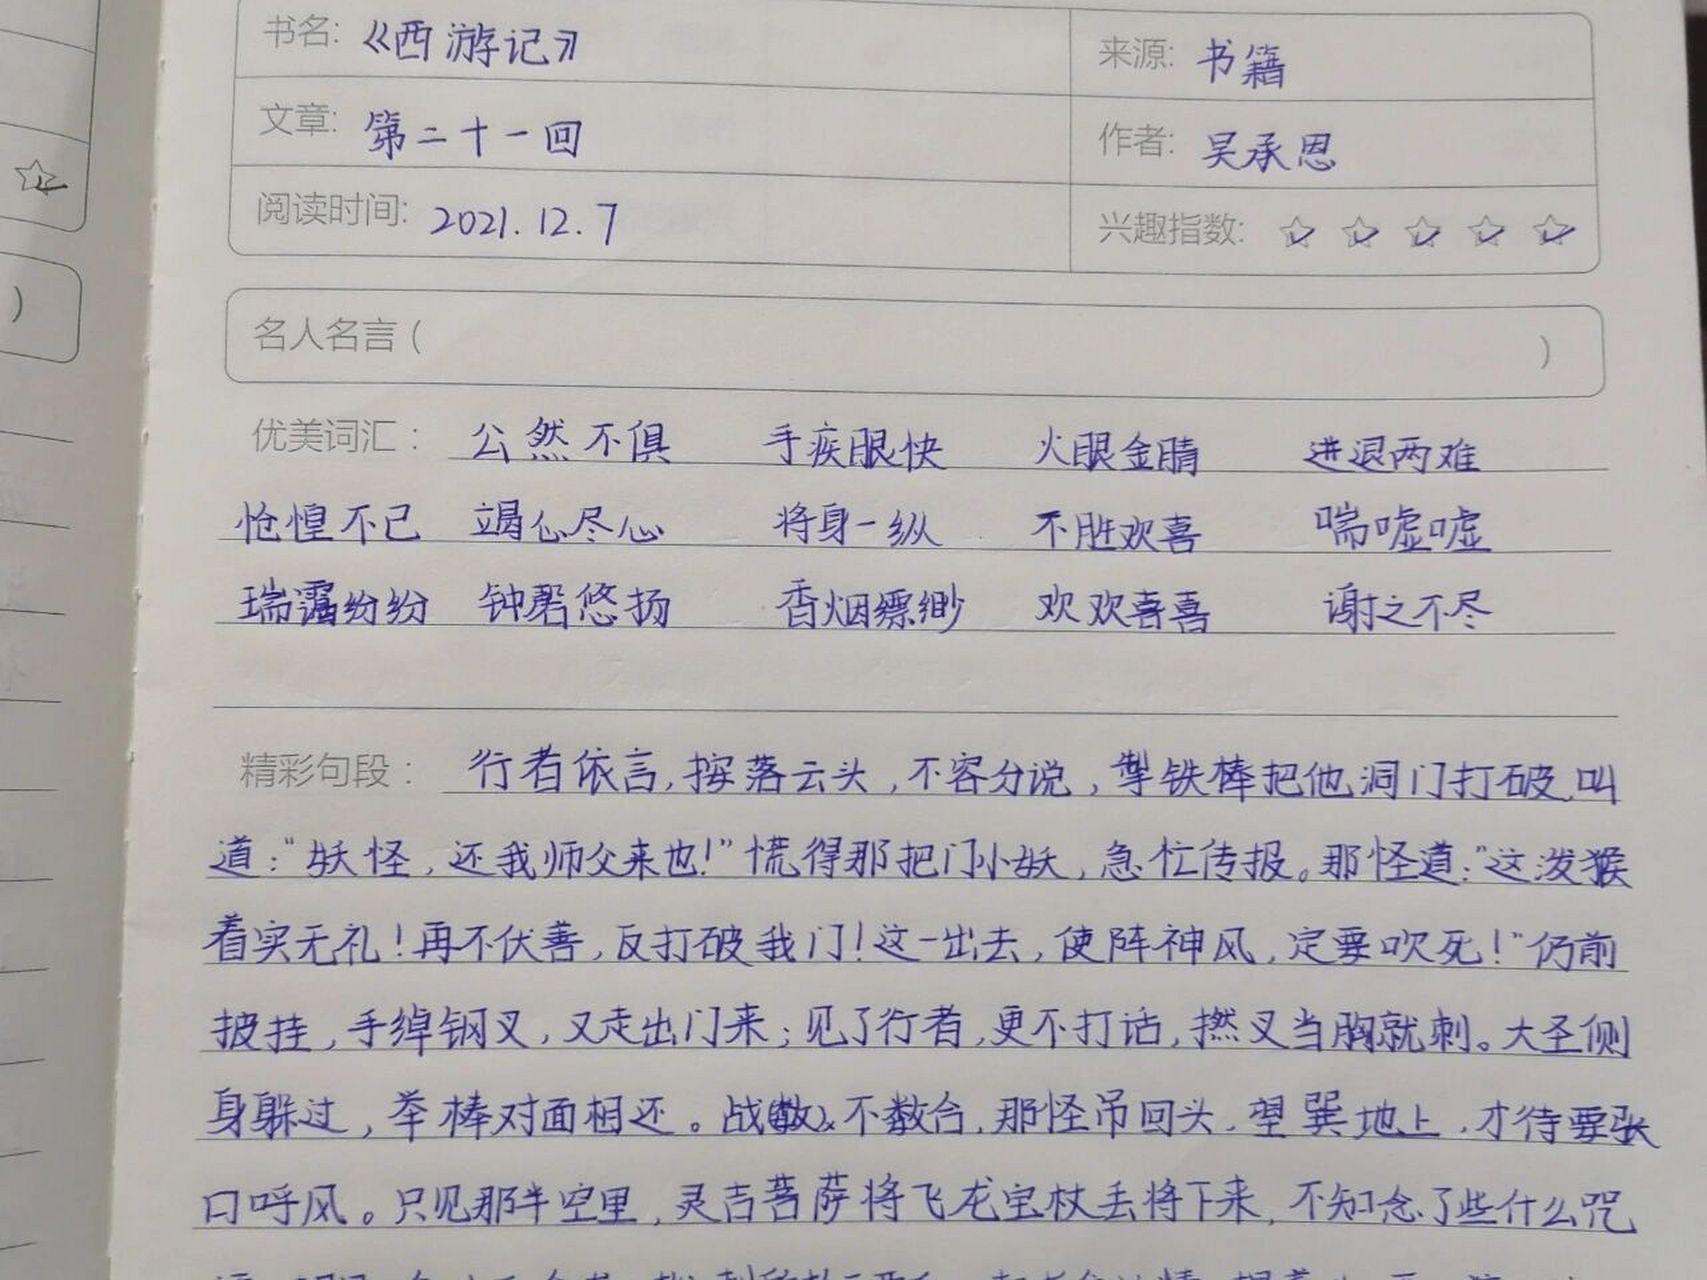 书名: 《西游记》
来源: 书籍
文章: 第二十一回
作者: 吴承恩
阅读时间: 2021.12.7
兴趣指数: ☆ ☆ ☆ ☆ ☆
名人名言 ( )
优美词汇: 公然不俱 手疾眼快 火眼金睛 进退两难
怆惶不已 竭心尽心 将身一纵 不胜欢喜 喘嘘嘘
瑞霭纷纷 钟磬悠扬 香烟缥缈 欢欢喜喜 谢之不尽
精彩句段: 行者依言,按落云头,不容分说,掣铁棒把他洞门打破,叫
道:“妖怪,还我师父来也!”慌得那把门小妖,急忙传报。那怪道:“这泼猴
着实无礼!再不伏善,反打破我门!这一出去,使阵神风,定要吹死!”仍前
披挂,手绰钢叉,又走出门来;见了行者,更不打话,撚叉当胸就刺。大圣侧
身躲过,举棒对面相还。战不数合,那怪吊回头,望巽地上,才待要张
口呼风。只见那半空里,灵吉菩萨将飞龙宝杖丢将下来,不知念了些什么咒